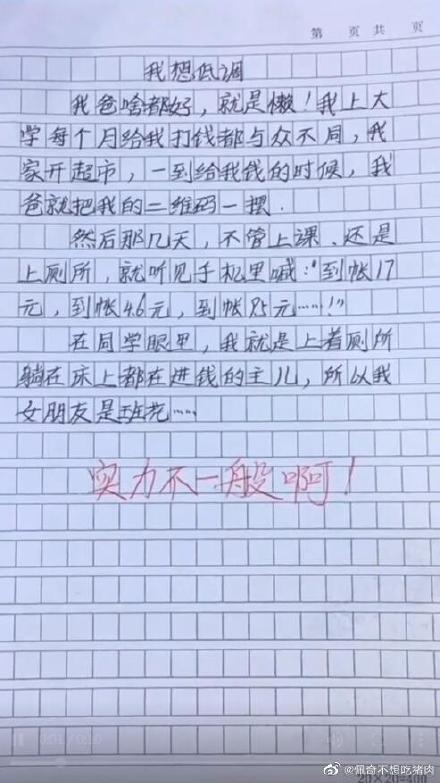 第 页 共 页
我想低调
我爸啥都好，就是懒！我上大
学每个月给我打钱都与众不同，我
家开超市，一到给我钱的时候，我
爸就把我的二维码一摆．
然后那几天，不管上课、还是
上厕所，就听见手机里喊："到帐17
元，到帐4.6元，到帐85元……！"
在同学眼里，我就是上着厕所
躺在床上都在进钱的主儿，所以我
女朋友是班花……
实力不一般啊！
@佩奇不想吃猪肉